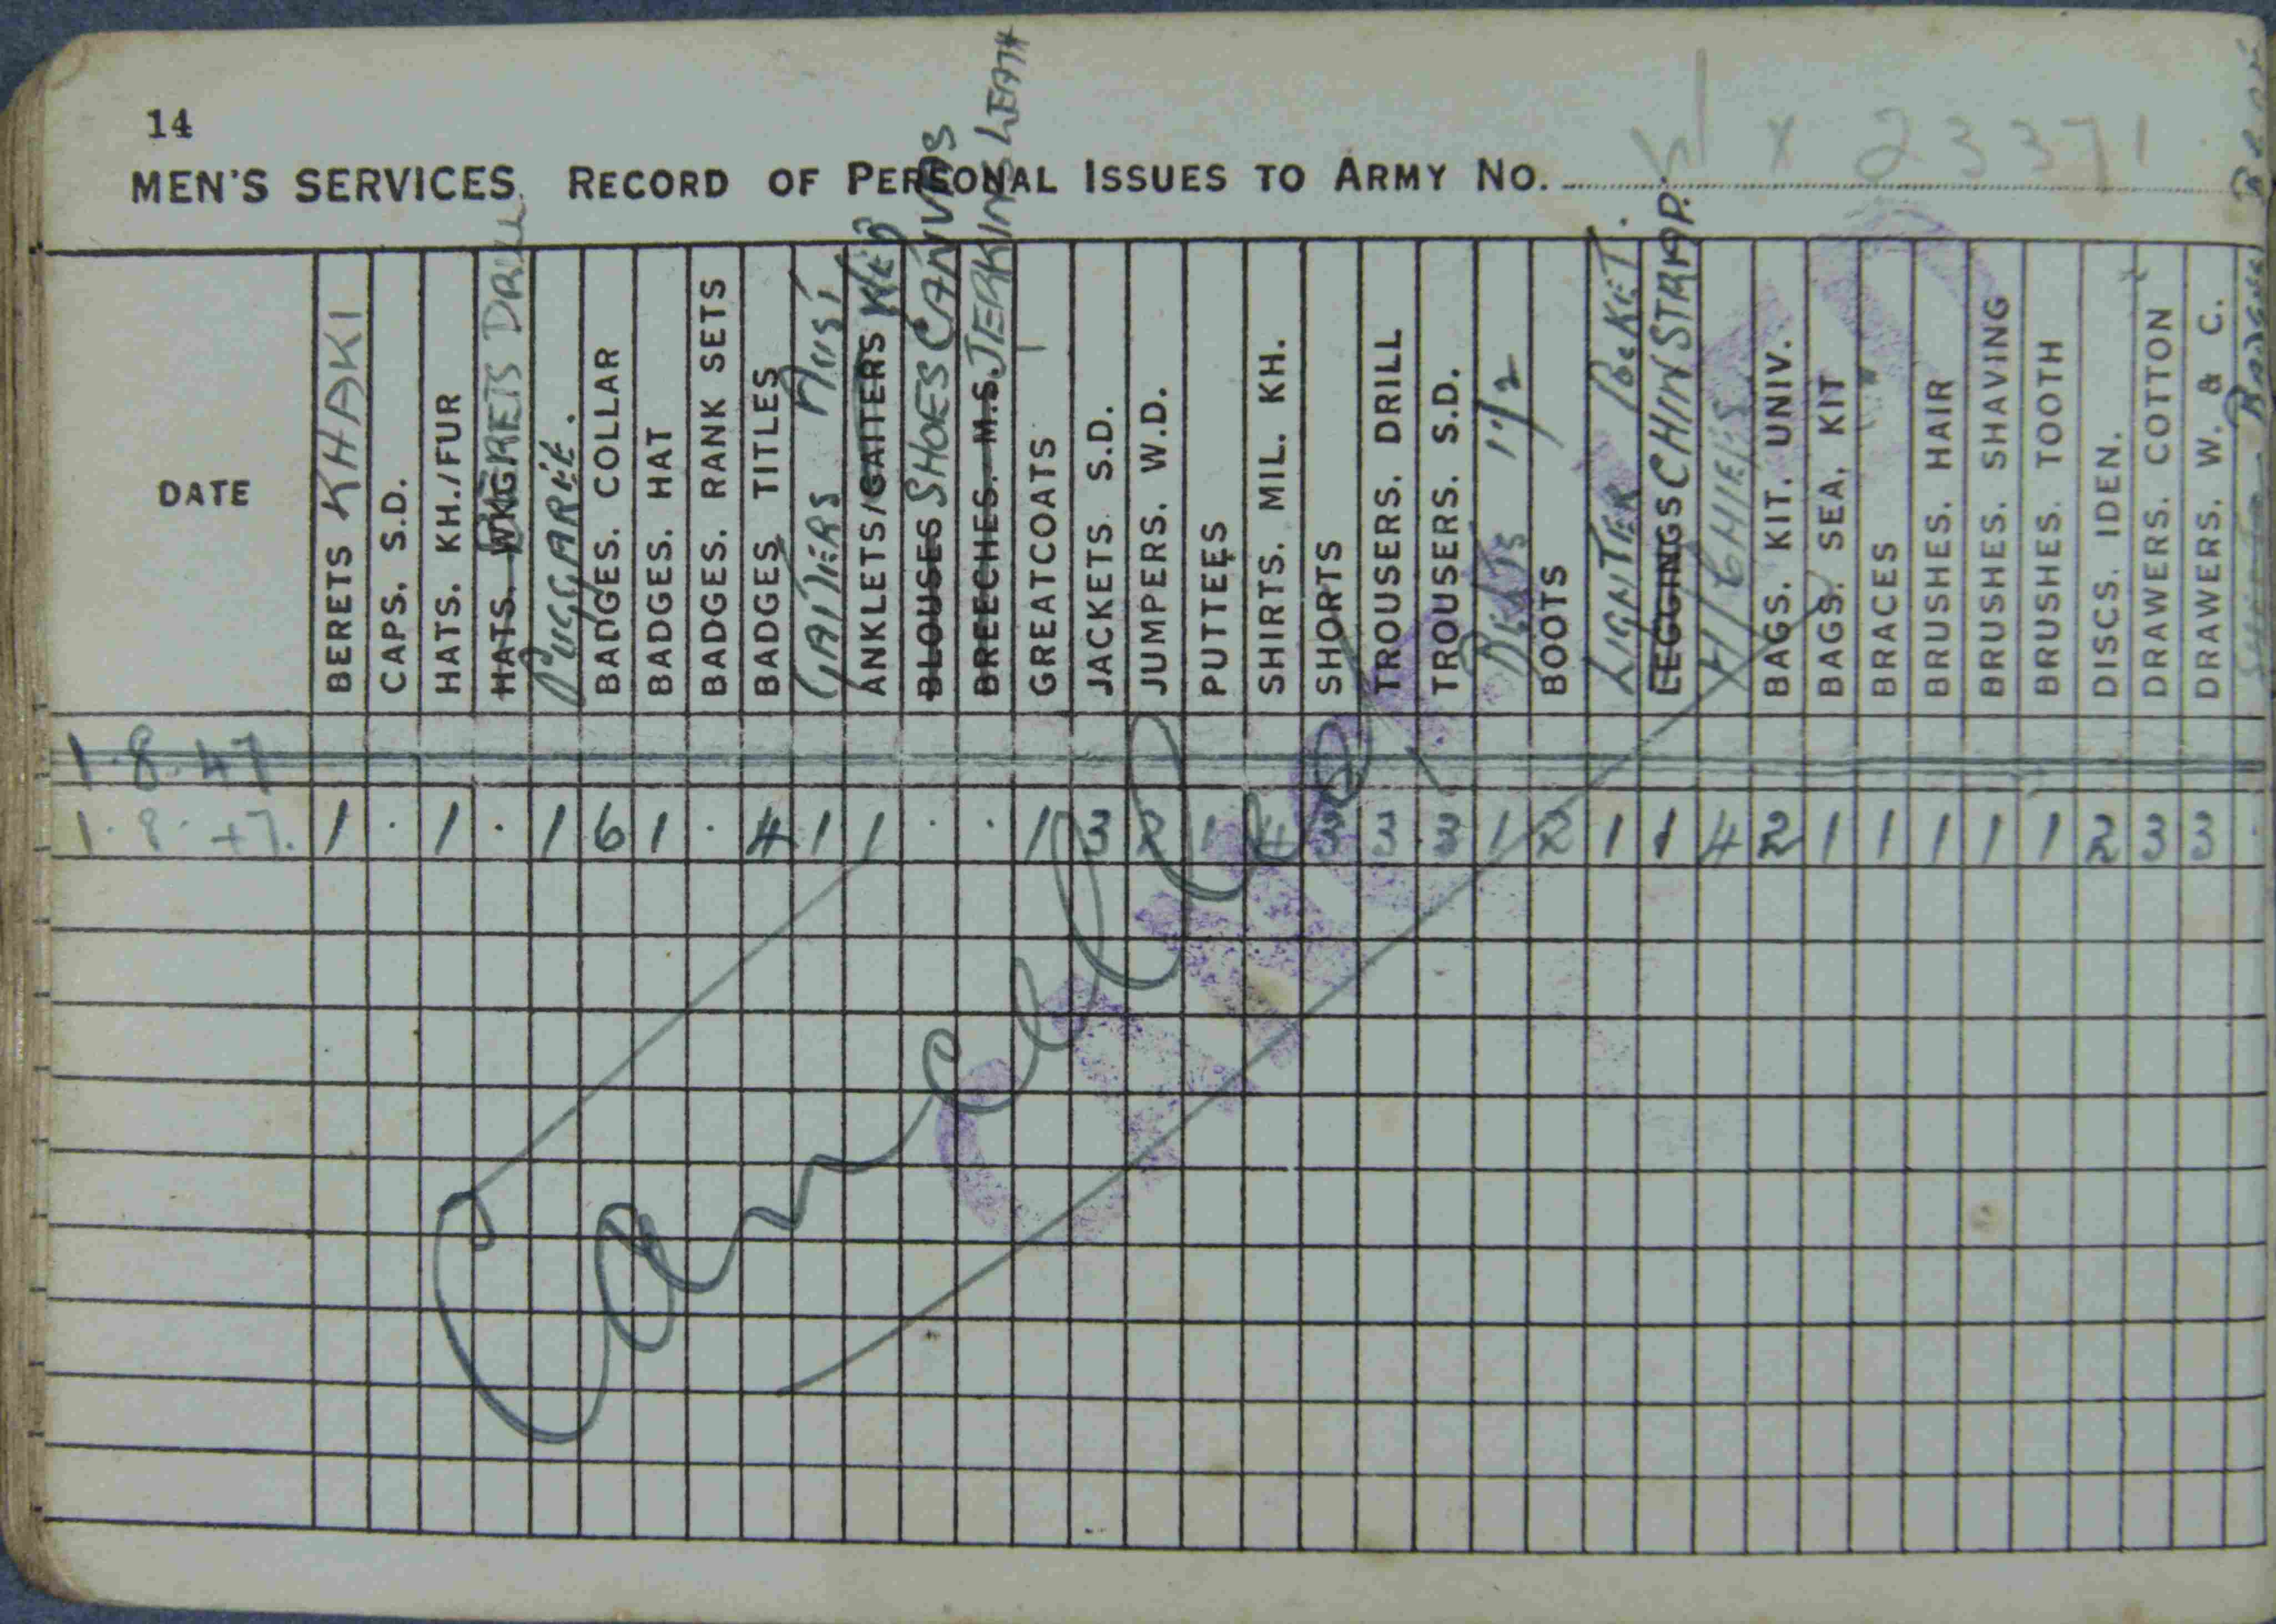 14
MEN'S SERVICES. RECORD OF PERSONAL ISSUES TO ARMY NO. WX 23371
DATE
BERETS KHAKI
CAPS. S.D.
HATS. KH./FUR
HATS. WKG BERETS DRILL
PUGGAREE.
BADGES. COLLAR
BADGES. HAT
BADGES. RANK SETS
BADGES. TITLES
GAITERS AUST
ANKLETS/GAITERS WEB
BLOUSES SHOES CANVAS
BREECHES. M.S. JERKINS LEATH
GREATCOATS
JACKETS S.D.
JUMPERS. W.D.
PUTTEES
SHIRTS. MIL. KH.
SHORTS
TROUSERS. DRILL
TROUSERS. S.D.
BELTS 1 1/2
BOOTS
LIGHTER POCKET.
LEGGINGS CHINSTRAP.
H/CHIEFS
BAGS. KIT. UNIV.
BAGS. SEA. KIT
BRACES
BRUSHES. HAIR
BRUSHES. SHAVING
BRUSHES. TOOTH
DISCS. IDEN.
DRAWERS. COTTON
DRAWERS. W. & C.
1.8.47
1.8.47. 1 . 1 . 1 6 1 . 4 1 1 . . 1 3 2 1 4 3 3 3 1 2 1 1 4 2 1 1 1 1 1 2 3 3
Cancelled